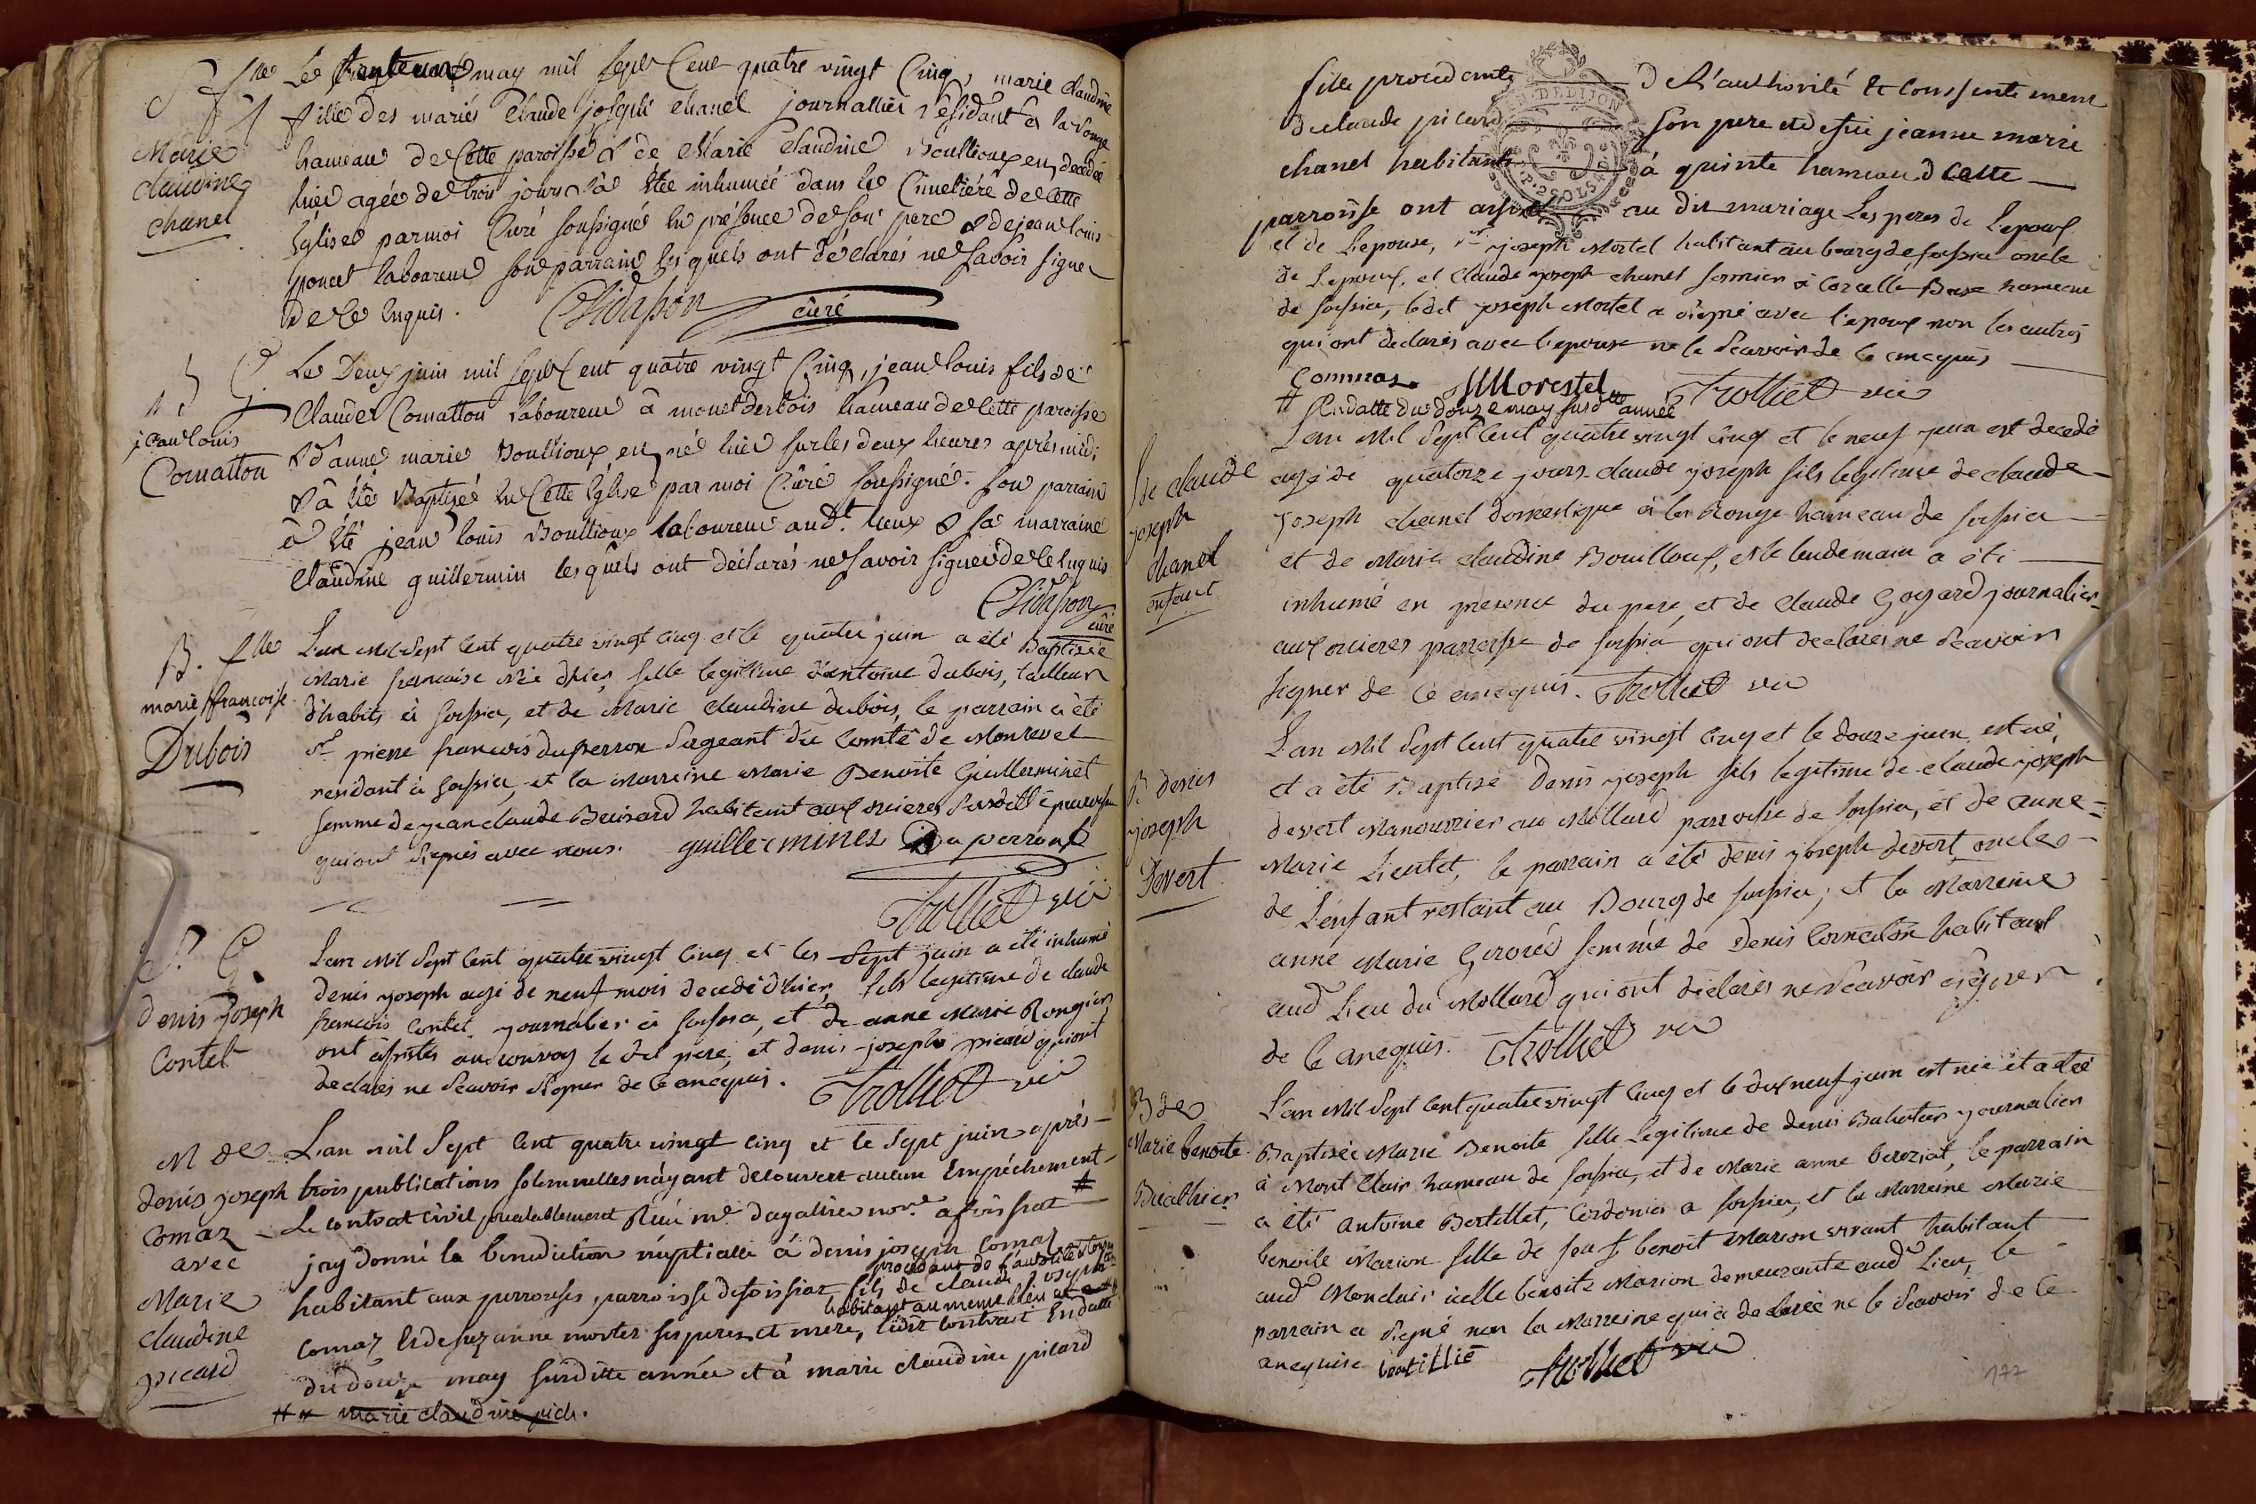 S. flle
Marie
claudine
chanel
Le may mil Sept Cent quatre vingt Cinq, marie claudine
fille des mariés Claude joseph chanel journallier résidant à la ronge
hameau de Cette paroisse & de Marie Claudine Boullioux en, decedée
hier agée de trois jours à Eté inhumée dans le Cimetiére de Cette
Eglise parmoi Curé soussigné En présence de son pere & de jean louis
poncet laboureur son parrain lesquels ont déclarés ne Savoir signer
de Ce Enquis. curé
B. G.
jean louis
Comatton
Le Deux juin mil Sept Cent quatre vingt Cinq, jean louis fils de
Claude Comatton Laboureur à hameau de Cette paroisse
& d'anne marie Boullioux en, né hier sur les deux heures après midi
& à Eté Baptizé En Cette Eglise par moi Curé soussigné. son parrain
à Eté jean louis Boullioux laboureur aud.t lieux & sa marraine
Claudine guillermin lesquels ont déclarés ne Savoir signer de Ce Enquis
curé
B. flle
marie françoise
Dubois
L'an Mil Sept Cent quatre vingt cinq et le quatre juin a été Baptisée
Marie francaise Née d'hier, fille legitime d'antoine dubois, tailleur
d'habits à foissia, et de Marie claudine dubois, le parrain a été
Sr pierre francois duperron Sergeant du Comté de Montrevel
residant à foissia, et la Marreine Marie Benoite Guillerminet
femme de jean claude Buisard habitant aux orcieres Susditte parroisse
qui ont signés avec nous. guillerminet Duperron
Trolliet vic
S. G.
denis joseph
Contet
L'an Mil Sept Cent quatre vingt cinq et le Sept juin a été inhumé
denis joseph agé de neuf mois decedé d'hier, fils legitime de claude
francois Contet journalier à foissia, et de anne Marie Rongier
ont assistés au convoy le dit pere, et denis joseph picard qui ont
declarés ne Scavoir Signer de ce enequis. Trolliet vic
M de
denis joseph
Comaz
avec
Marie
claudine
picard
L'an mil Sept Cent quatre vingt cinq et le Sept juin après
trois publications solemnelles n'ayant decouvert aucun Empéchement
Le contrat civil prealablement Reçu me. dagallier nore. a foissiat #
j'ay donné la benediction nuptialle à denis joseph Comaz
procedant de l'authorité
habitant aux perrouses, parroisse de foissiat, fils de claude joseph
habitant au meme lieu
Comaz Et de suzanne mortet ses peres et mere, Endatte
du douze may susditte année et à marie claudine picard
## marie claudine pich.
fille procedente de l'authorité et consentement
de claude picard son pere et de feu jeanne marie
chanel habitants à quinte hameau d Cette
parroisse ont assisté au dit mariage Les peres de L'epoux
et de L'epouse, Sr joseph Mortel habitant au bourg de foissia oncle
de L'epoux, et claude joseph chanel fermier à Corcelle Base hameau
de foissia, ledit joseph Mortel a signé avec l'epoux non les autres
qui ont declarés avec l'epouse ne le Scavoir de ce enequis
Commas Morestel Trolliet vic
# En datte du douze may susdte année
S de claude
joseph
chanel
enfant
L'an Mil Sept Cent quatre vingt cinq et le neuf juin est decedé
agé de quatorze jours claude joseph fils legitime de claude
joseph chanel domestique à la Ronge hameau de foissia
et de Marie claudine Bouilloux, et le lendemain a été
inhumé en presence du pere, et de claude Goyard journalier
aux orcieres parroisse de foissia qui ont declarés ne Scavoir
signer de ce enequis. Trolliet vic
B denis
joseph
Devert
L'an Mil Sept Cent quatre vingt cinq et le douze juin est né,
et a été Baptisé denis joseph fils legitime de claude joseph
devert Manouvrier au Mollard parroisse de foissia, et de anne
Marie Lientet, le parrain a été denis joseph devert oncle
de L'enfant restant au Bourg de foissia, et la Marreine
anne Marie femme de denis Cornaton habitant
aud Lieu du Mollard qui ont declarés ne Scavoir signer
de ce enequis. Trolliet vic
B de
Marie benoite
L'an Mil Sept Cent quatre vingt cinq et le dix neuf juin est née et a été
Baptisée Marie Benoite fille legitime de denis journalier
à Mont Clair hameau de foissia, et de Marie anne bereziat, le parrain
a été antoine Bertillet, Cordonier a foissia, et la Marreine Marie
benoite Marion fille de feu benoit Marion vivant habitant
aud Monclair icelle benoite Marion demeurante aud Lieu, le
parrain a signé non la Marreine qui a declarée ne le Scavoir de ce
enequise Trolliet vic
177